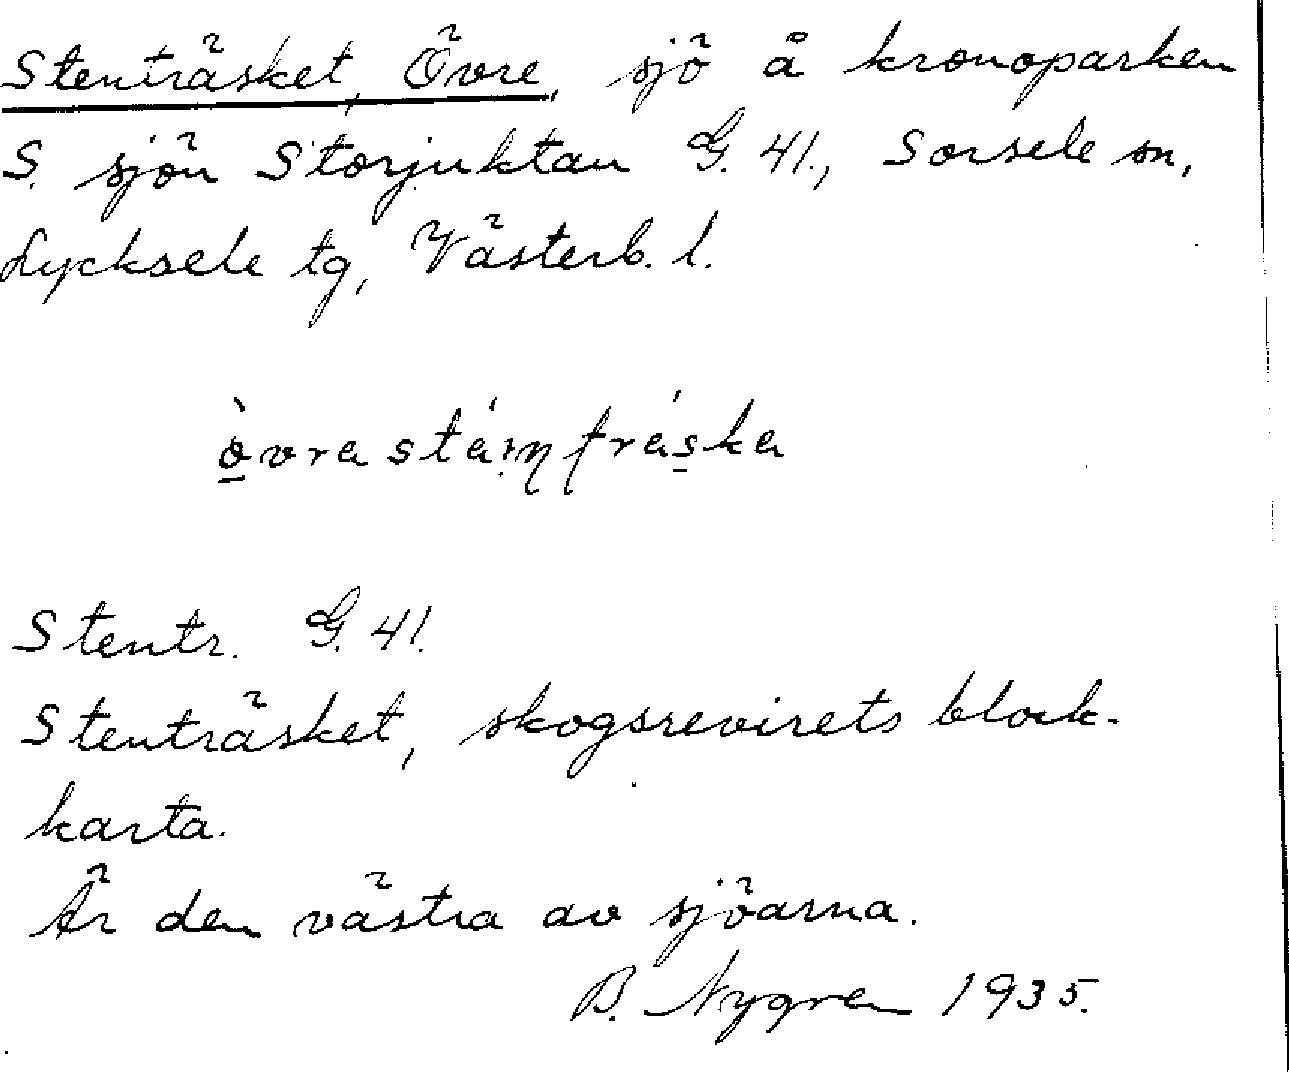 Stenträsket, Övre, sjö å kronoparken
S. sjön Storjuktan G. 41., Sorsele sn,
Lycksele tg, Västerb. l.
Stentr. G. 41.
Stenträsket, skogsrevirets block-
karta.
Är den västra av sjöarna.
B. Nygren 1935.